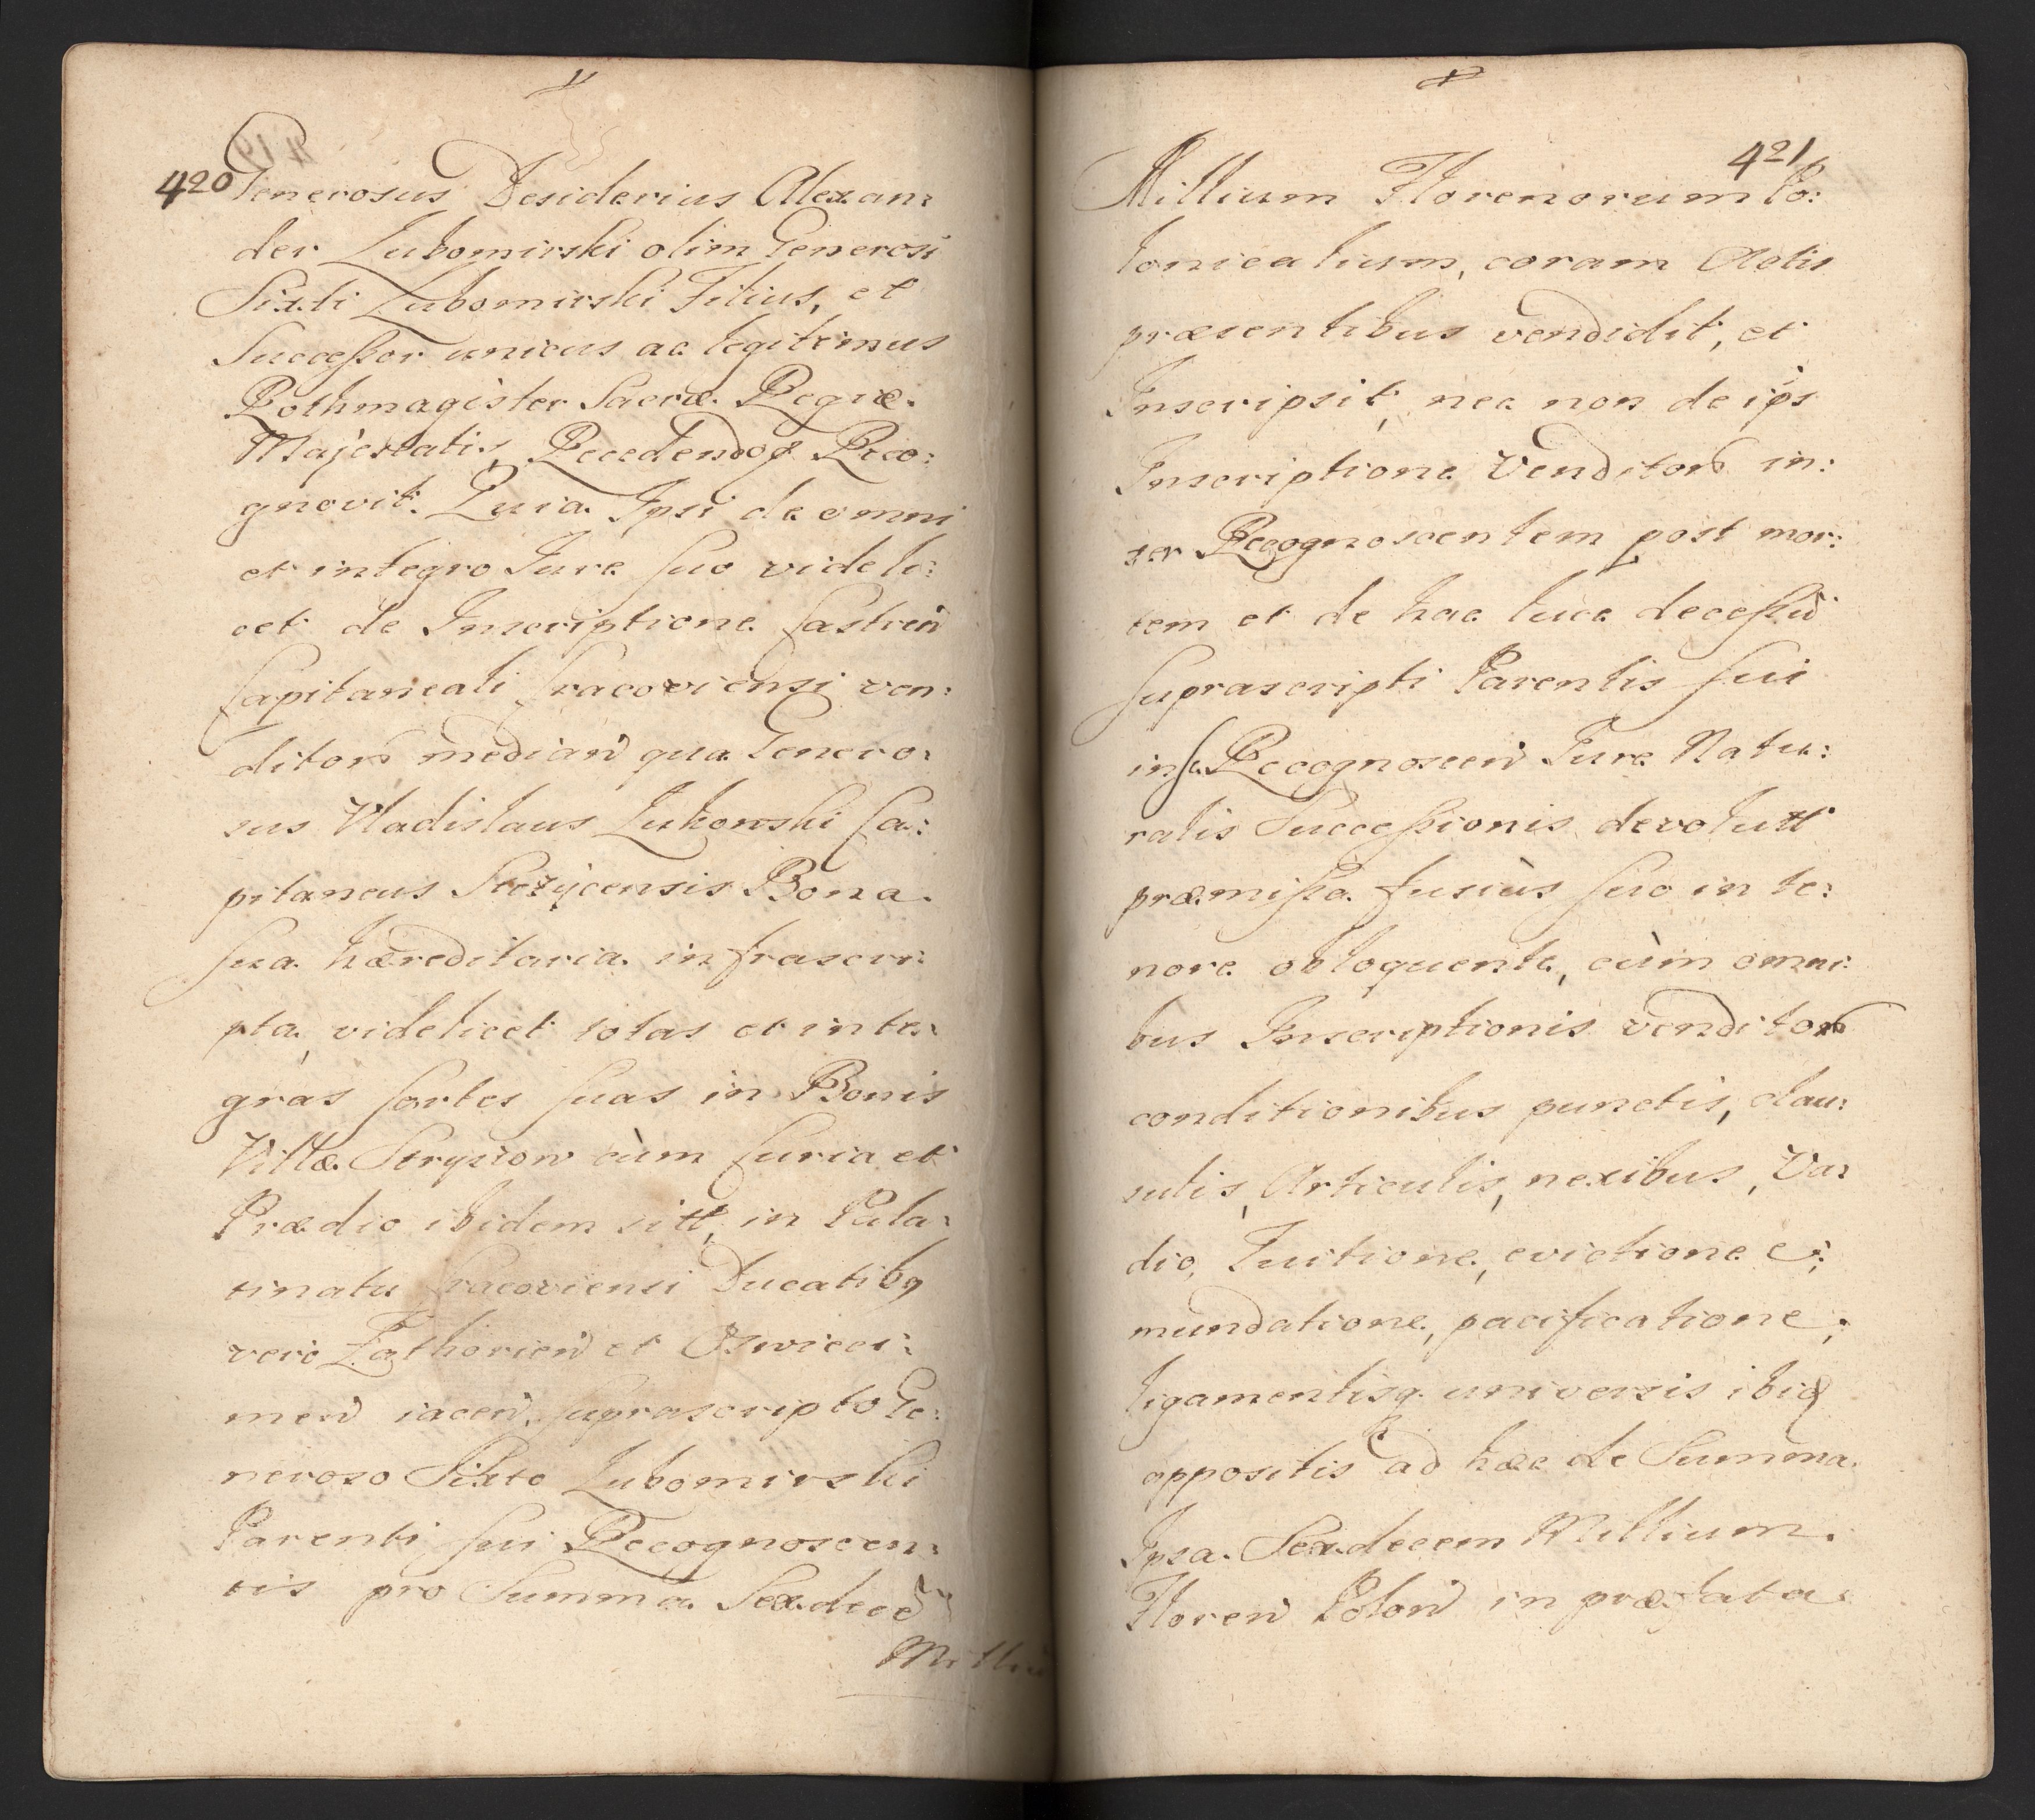 420
Generosus Desiderius Alexan:
der Lubomirski olim Generosi
Sixti Lubomirski Filius, et
Successor unicus ac legitimus
Rothmagister Sacræ Regiæ
Majestatis, Recedendoq Reco:
gnovit. Quia Ipsi de omni
et integro Jure suo videli:
cet de Inscriptione Castren
Capitaneali Cracoviensi ven:
ditor median qua Genero:
sus Vladislaus Lukowski Ca:
pitaneus Stezÿcensis Bona
sua hæreditaria infrascri:
pta, videlicet totas et inte:
gras sortes suas in Bonis
Villæ Stryszow cùm Curia et
Prædio ibidem sitt, in Pala:
tinatu Cracoviensi Ducatibq
vero Zathorien et Oswieci:
men iacen, suprascripto Ge:
neroso Sixto Lubomirski
Parenti sui Recognoscen:
tis pro Summa Sexdecē
Milliū
421
Millium Florenorum Po:
lonicalium, coram Actis
præsentibus vendidit, et
Inscripsit, nec non de ips
Inscriptione Venditor in:
ser Recognoscentem post mor:
tem et de hac luce decessū
suprascripti Parentis sui
inse Recognoscen Jure Natu:
ralis Successionis devolutt
præmissa fusiùs suo in te:
nore obloquente, cùm omni:
bus Inscriptionis venditor
conditionibus punctis, clau:
sulis, Articulis, nexibus, Va:
dio, Tuitione, evictione e:
mundatione, pacificatione,
ligamentisq. universis ibiq
appositis ad hæc de Summa
Ipsa Sexdecem Millium
Floren Polon in præfata